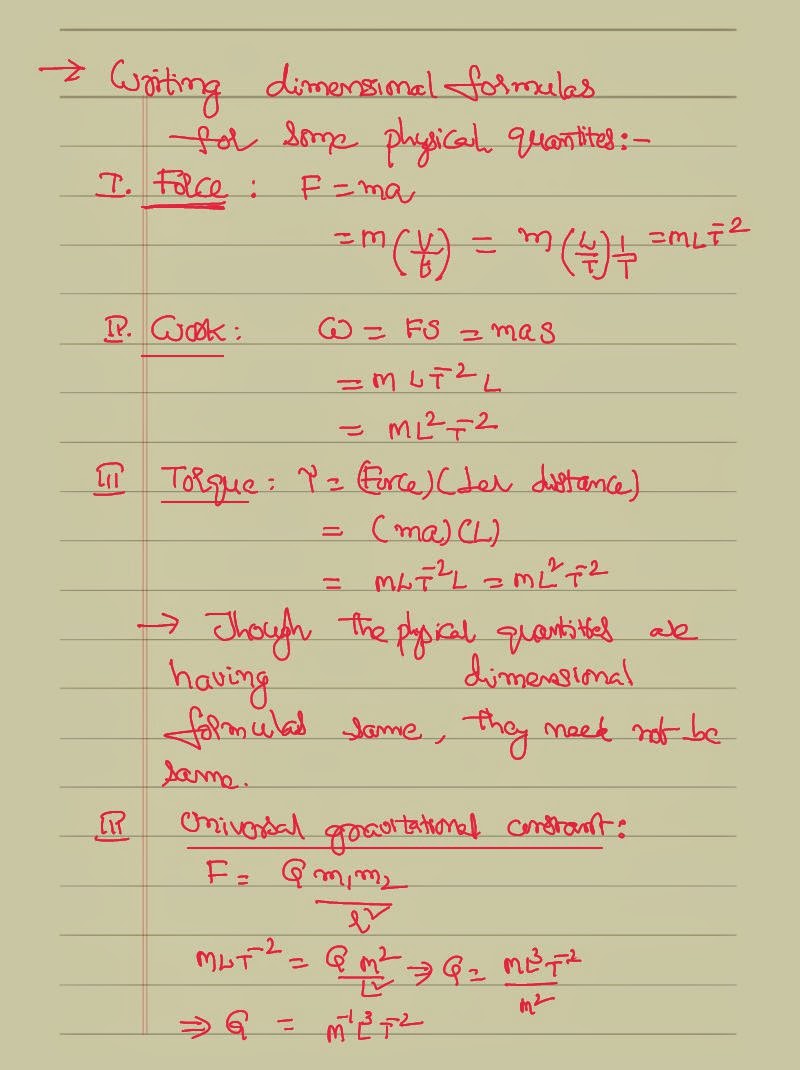 → Writing dimensional formulas
for some physical quantites:-
I. Force : F = ma
= m (V/t) = m (L/T) 1/T = MLT⁻²
II. Work : W = FS = mas
= M LT⁻² L
= ML²T⁻²
III Torque : τ = (Force)(Ler distance)
= (ma)(L)
= MLT⁻²L = ML²T⁻²
→ Though the physical quantities are
having dimensional
formulas same, they need not be
same.
IV Universal gravitational constant:
F = G m₁m₂/r²
MLT⁻² = G M²/L² ⇒ G = ML³T⁻²/M²
⇒ G = M⁻¹L³T⁻²